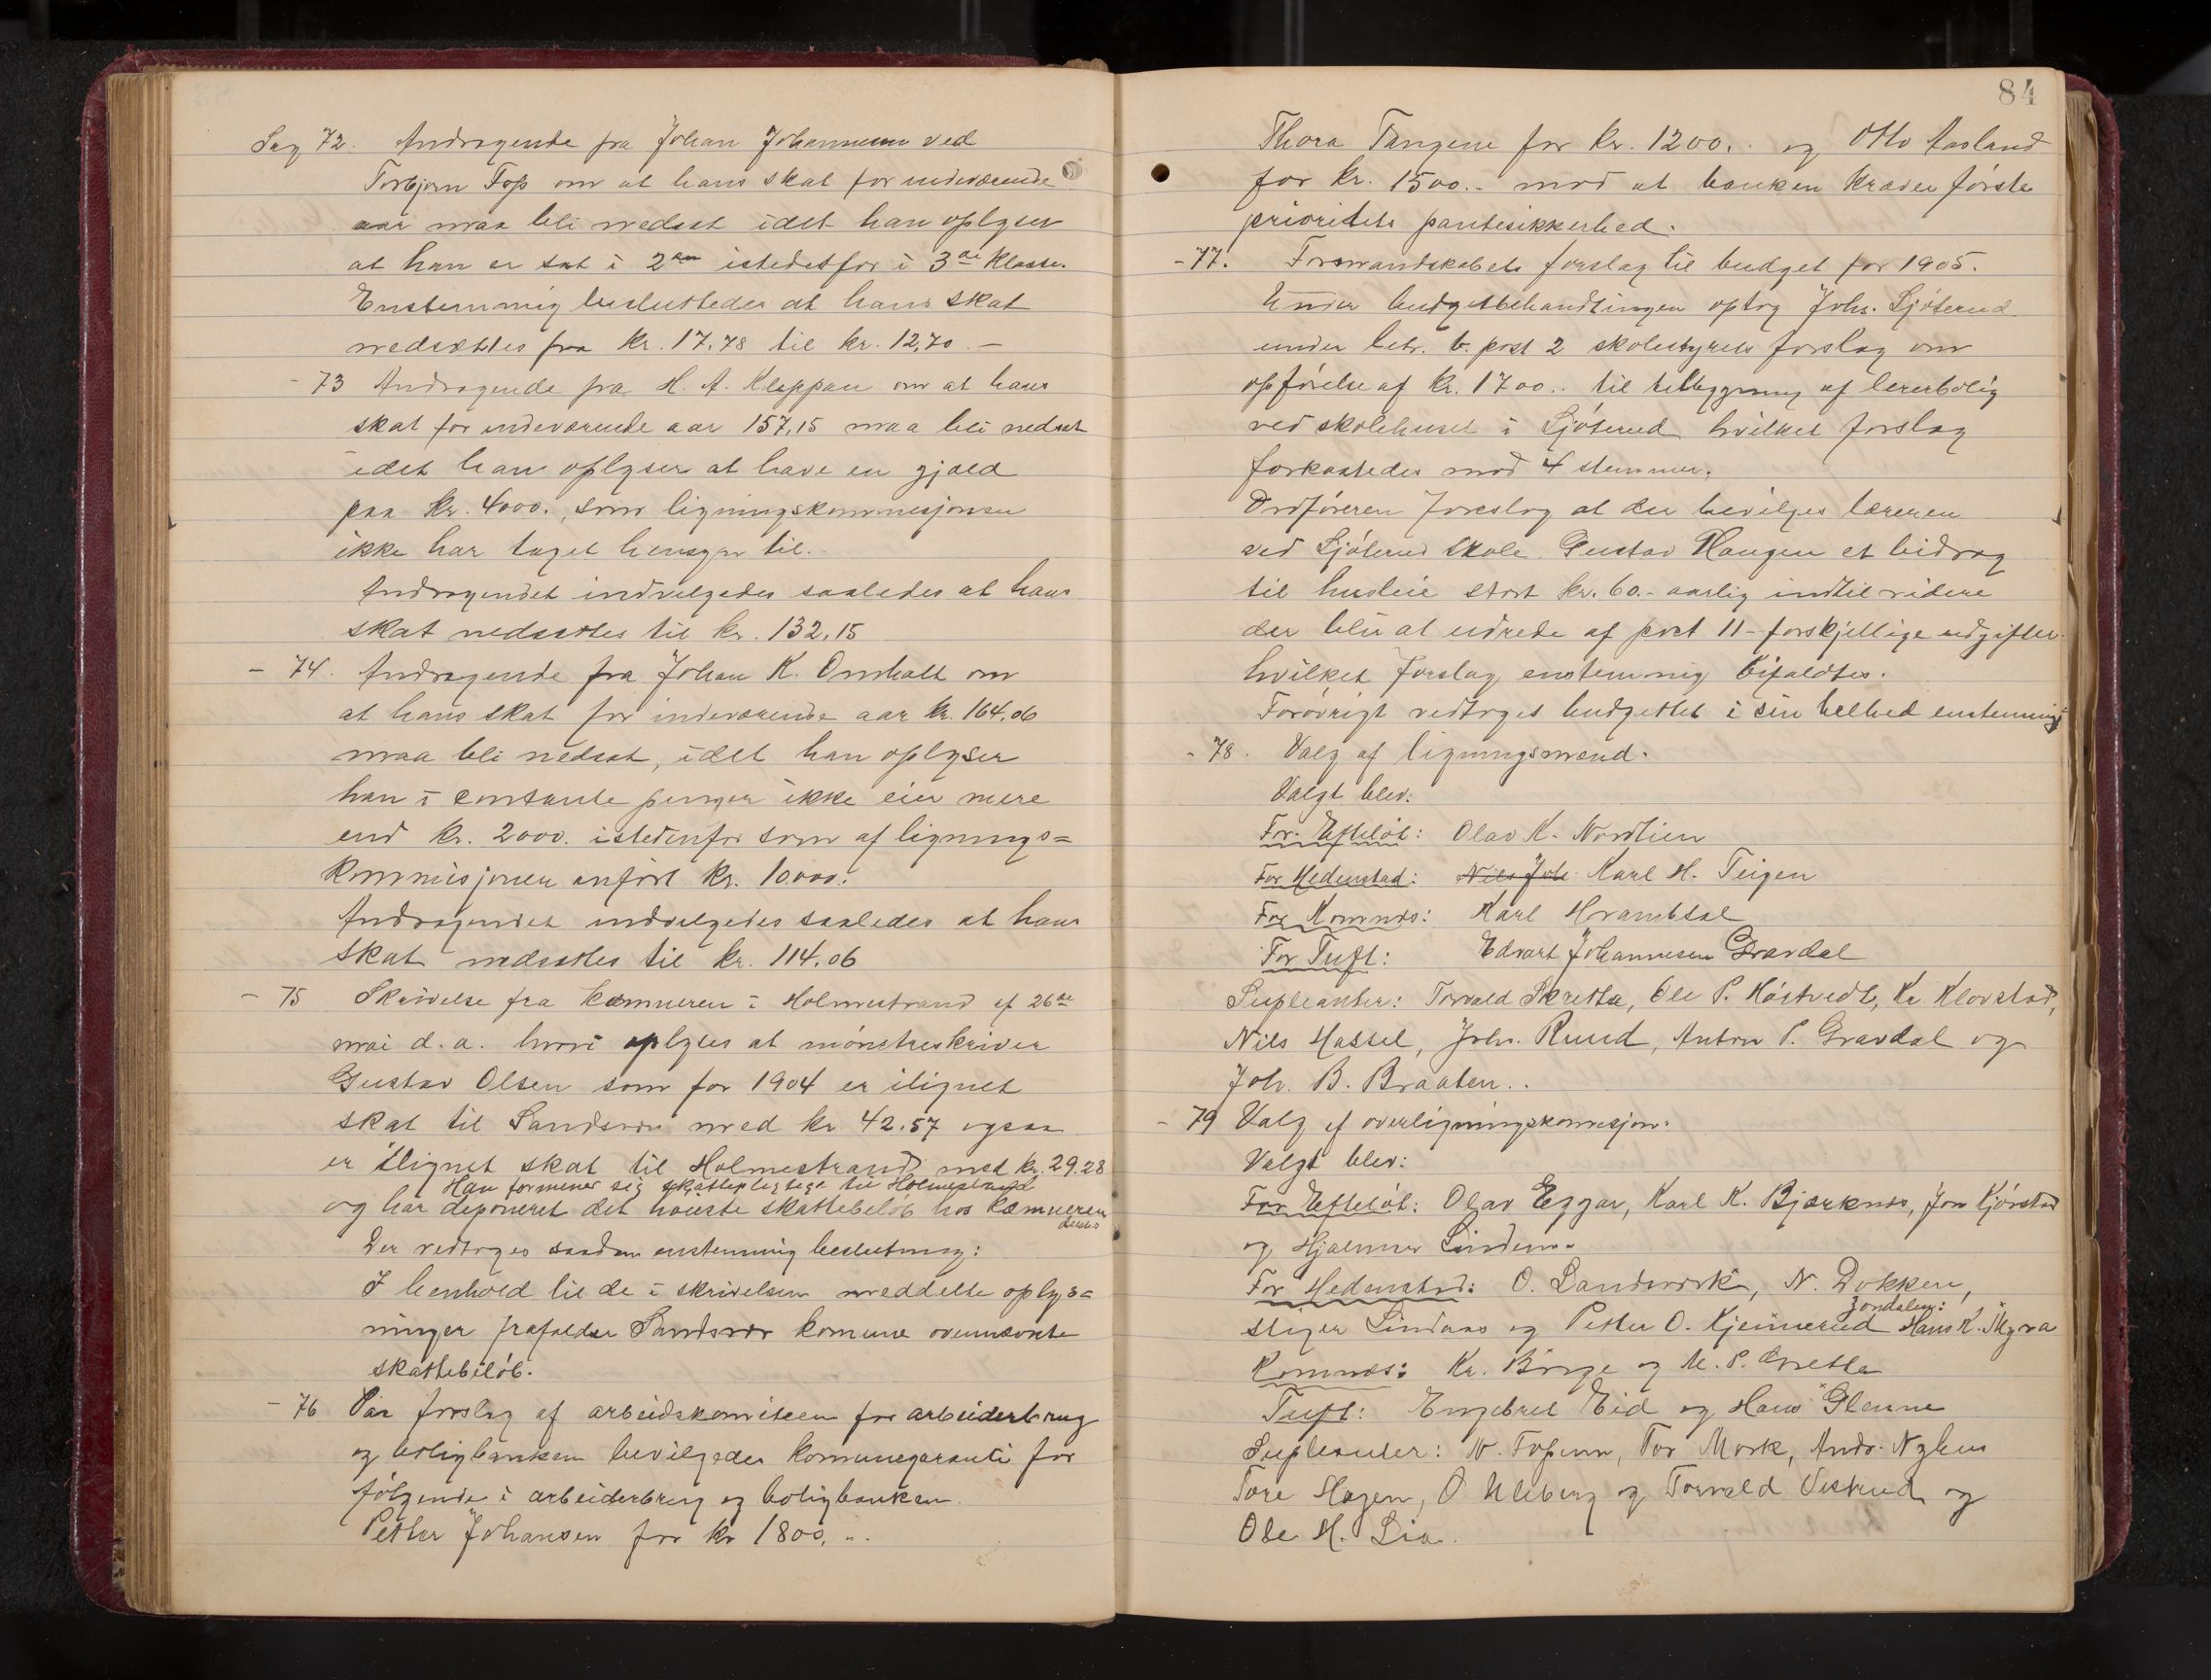 Sag 72. Andragende fra Johan Johannesen ved
Torbjørn Fos om at hans skat for indeværende
aar maa bli nedsat idet han oplyser
at han er sat i 2den istedetfor i 3die klasse.
Enstemmig besluttedes at hans skat
nedsættes fra kr. 17.78 til kr. 12,70. —
- 73 Andragende fra H. A. Kleppan om at hans
skat for indeværende aar 157,15 maa bli nedsat
idet han oplyser at have en gjæld
paa kr. 4000., som ligningskommisjonen
ikke har taget hensyn til.
Andragendet indvilgedes saaledes at hans
skat nedsattes til kr. 132,15
- 74. Andragende fra Johan K. Omholt om
at hans skat for indeværende aar kr. 164.06
maa bli nedsat, idet han oplyser
han i contante penger ikke eier mere
end kr. 2000. istedenfor som af lignings=
kommisjonen anført kr. 10000.
Andragendet indvilgedes saaledes at hans
skat nedsattes til kr. 114.06
- 75 Skrivelse fra kæmneren i Holmestrand af 26de
mai d. a. hvori oplyses at mønstreskriver
Gustav Olsen som for 1904 er ilignet
skat til Sandsvær med kr. 42.57 ogsaa
er ilignet skat til Holmestrand med kr. 29.28
Han formener sig skattepligtige til Holmestrand
og har deponeret det høieste skattebeløb hos kæmneren
dersteds
Der vedtoges saadan enstemmig beslutning:
I henhold til de i skrivelsen meddelte oplys=
ninger frafalder Sandsvær komune ovennævnte
skattebeløb.
- 76 Paa forslag af arbeidskomiteen for arbeiderbrug
og boligbanken bevilgedes komunegaranti for
følgende i arbeiderbrug og boligbanken.
Petter Johansen for kr 1800. ..
84
Thora Tangene for kr. 1200. . og Otto Aasland
for kr. 1500.. mod at banken kræver første
prioritets pantesikkerhed.
- 77. Formandskabets forslag til budget for 1905.
Under budgetbehandlingen optog Johs. Sjøterud
under litr. b. post 2 skolestyrets forslag om
opførelse af kr. 1700.. til tilbygning af lærerbolig
ved skolehuset i Sjøterud hvilket forslag
forkastedes mod 4 stemmer.
Ordføreren foreslog at der bevilges læreren
ved Sjøterud skole Gustav Haugen et bidrag
til husleie stort kr. 60.- aarlig indtil videre
der blir at udrede af post 11 - forskjellige udgifter.
hvilket forslag enstemmig bifaldtes.
Forøvrigt vedtoges budgettet i sin helhed enstemmig
- 78. Valg af ligningsmænd.
Valgt blev:
For Efteløt: Olav K. Nordlien
For Hedenstad: Nils Joh Karl H. Teigen
For Komnæs: Karl Hvambsal
For Tuft: Edvart Johannesen Gravdal
Supleanter: Torvald Skretta, Ole P. Høstvedt, Kr Klovstad,
Nils Hassel, Johs. Ruud, Anton P. Gravdal og
Joh. B. Braaten..
- 79 Valg af overligningskomisjon.
Valgt blev:
For Efteløt: Olav Eggar, Karl K. Bjærknes, Jon Kjørstad
og Hjalmar Lindem.
For Hedenstad: O. Landsværk, N. Dokken,
Jondalen:
stiger Lindaas og Petter O. Kjennerud Hans K. Myra
Komnæs: Kr. Børge og M. P.
Tuft: Engebret Eid og Hans Glenne
Supleanter: N. Fossum, Tor Mork, Andr. Nyhus
Tore Hagen, O Ulleberg og Torvald Vestrud og
Ole H. Lia.